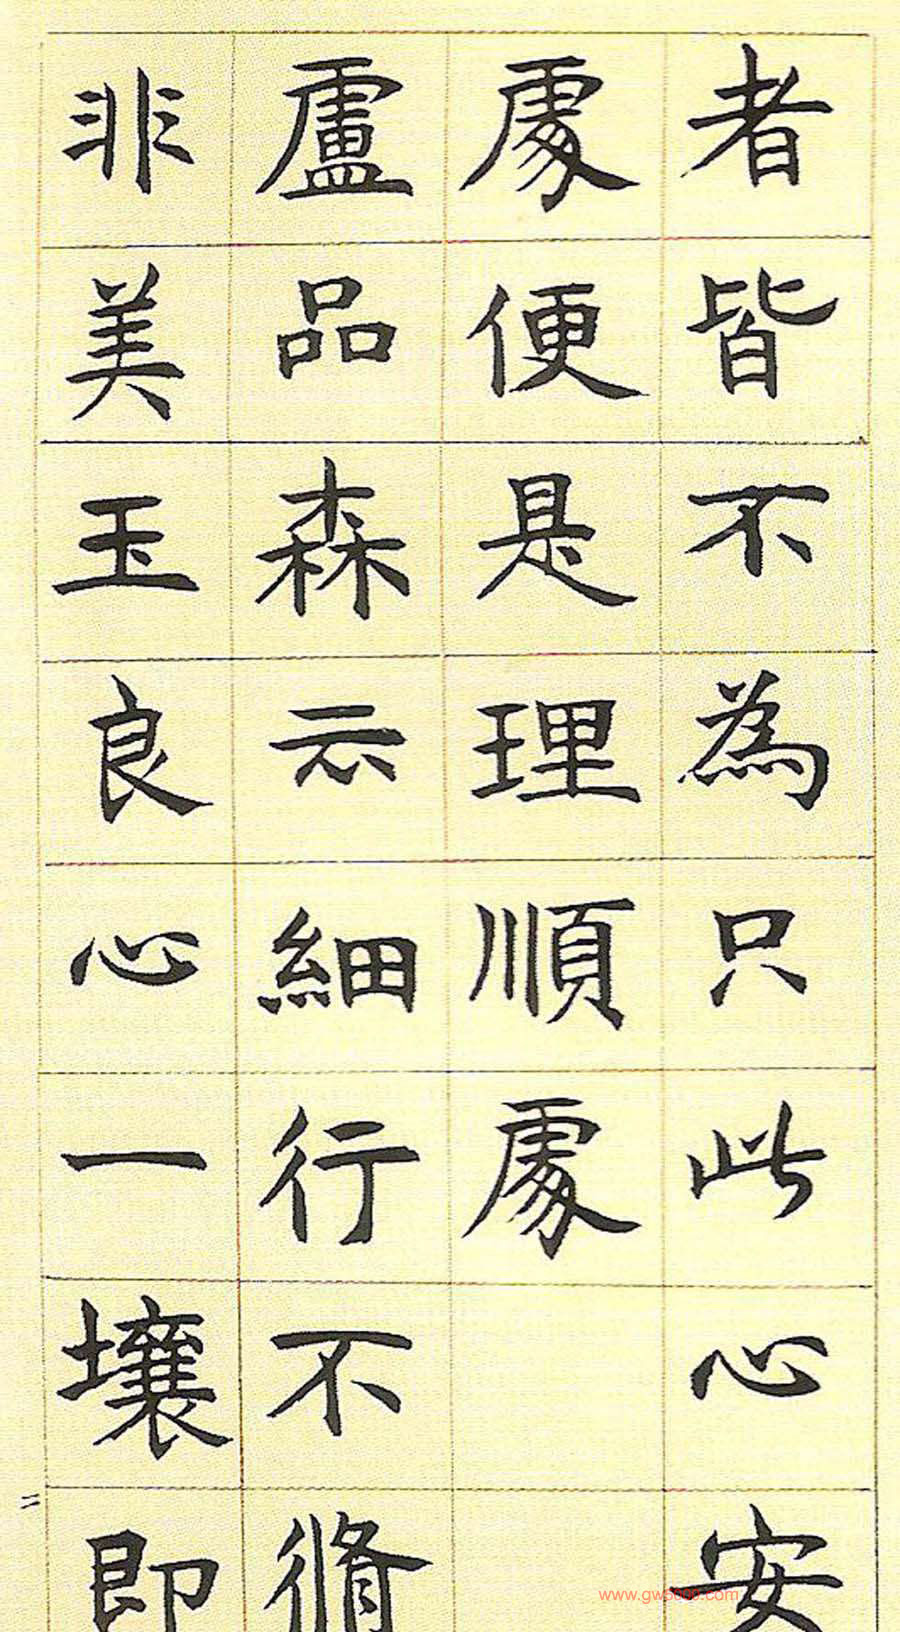 者皆不為只此心安
處便是理順處
盧品森云細行不脩
非美玉良心一壤即
二
www.gw8000.com